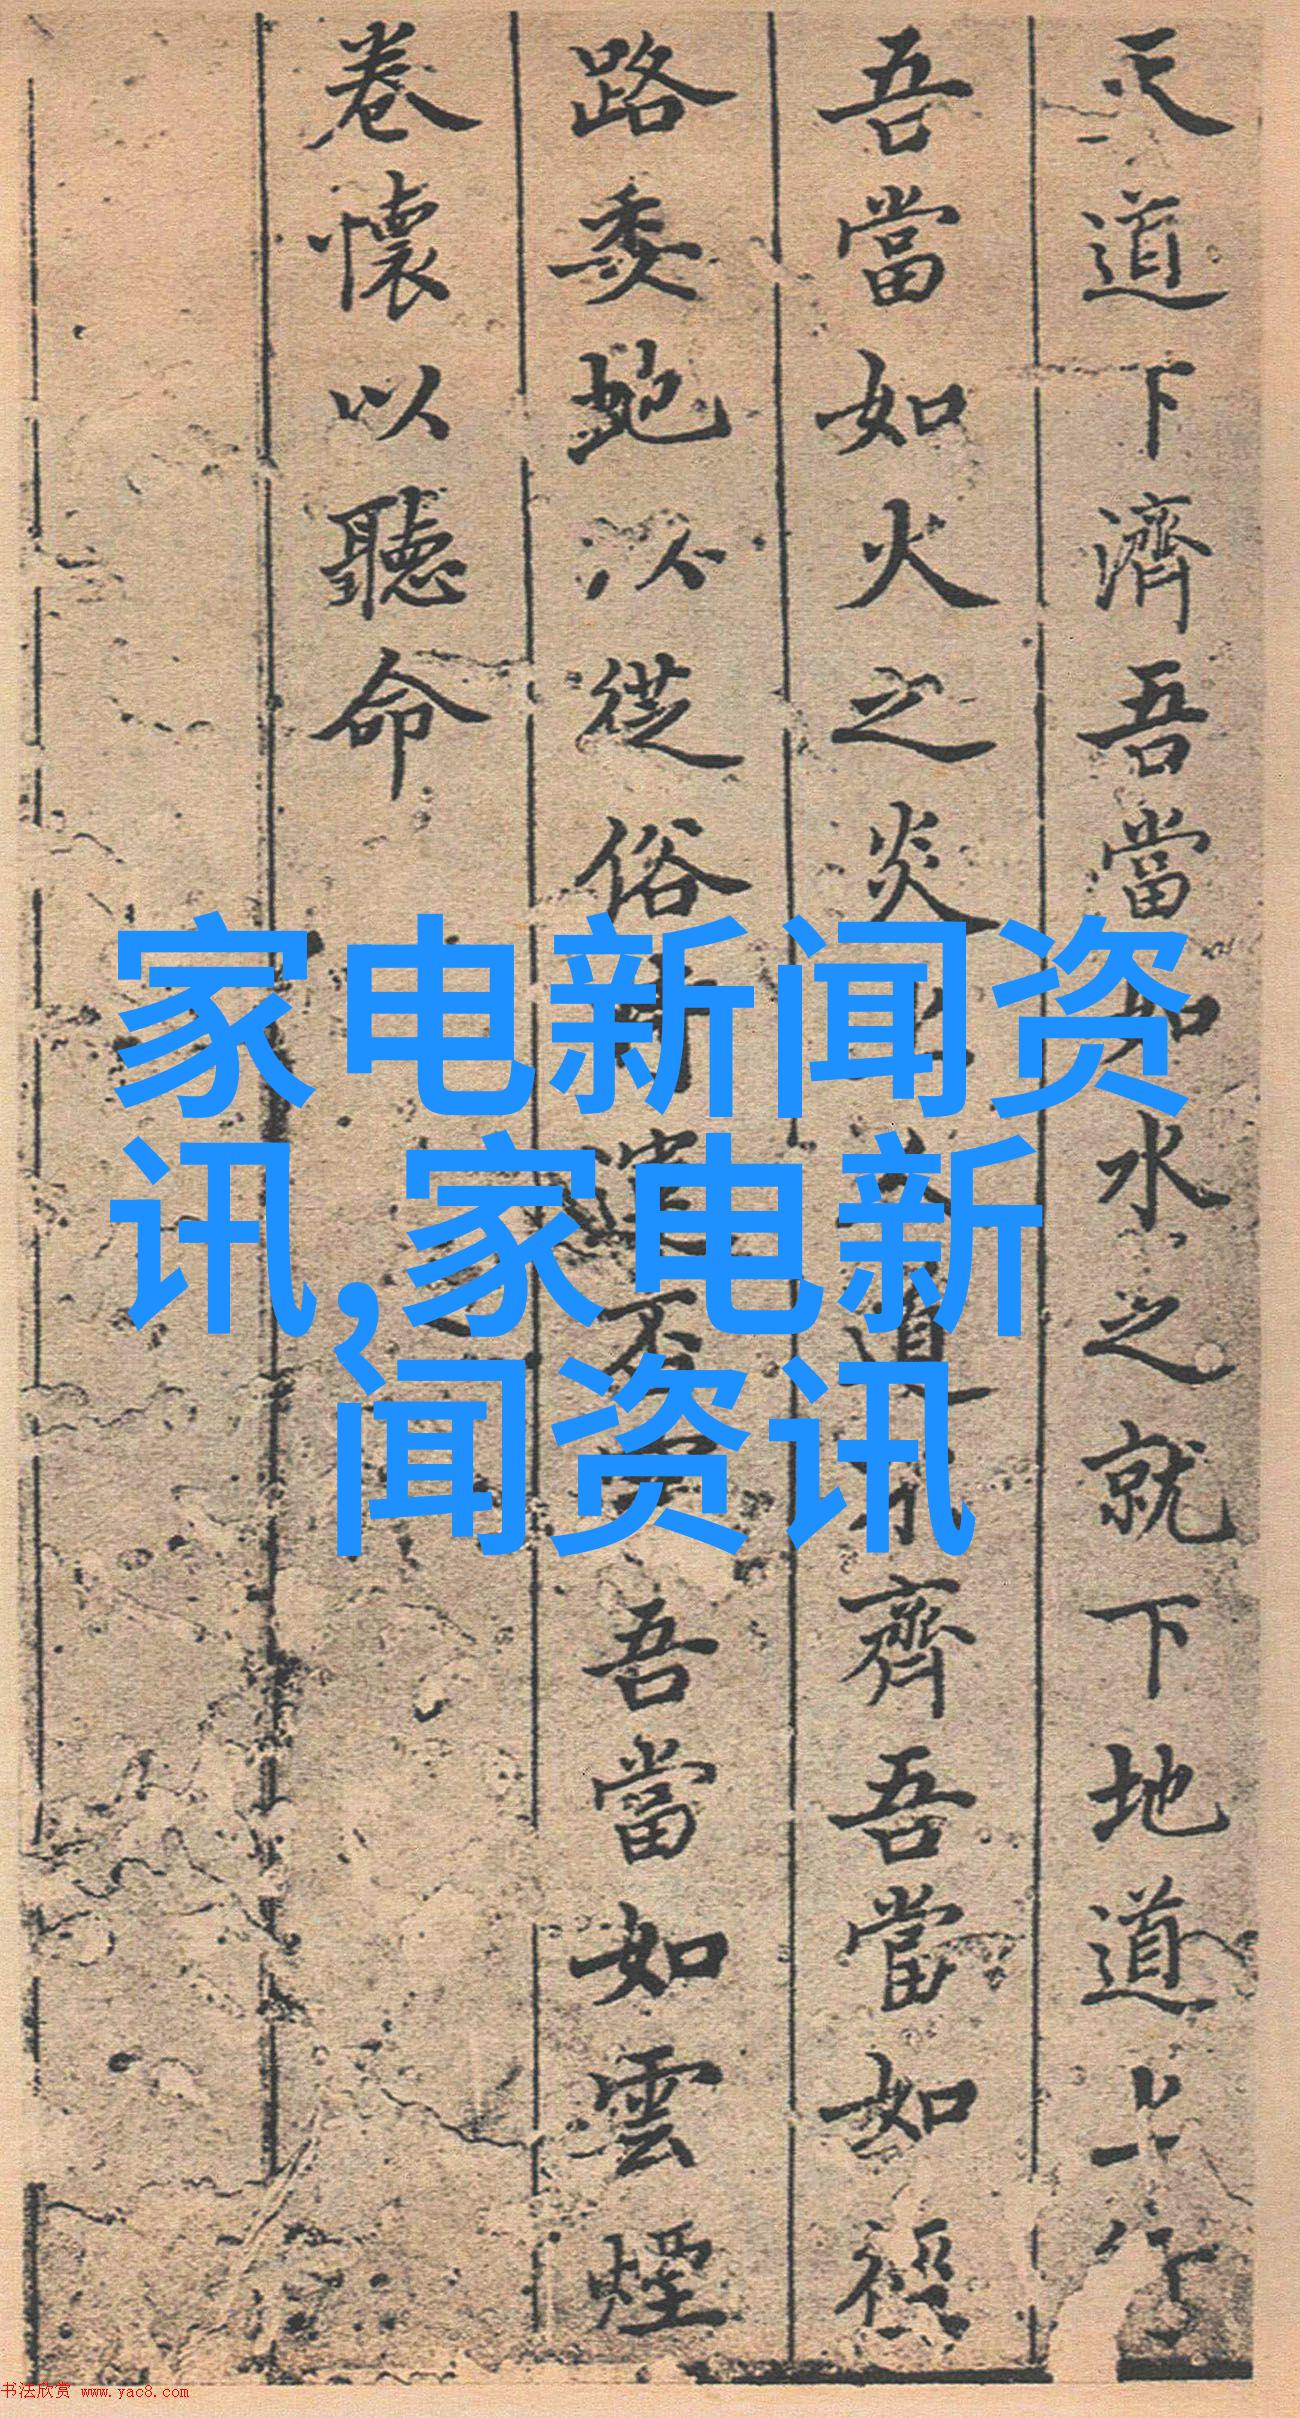 天道下濟吾當如水之就下地道上行
吾當如火之炎
道
齊吾當如經
路委虵以從俗
吾當如雲煙
卷懷以聽命
家电新闻资
讯,家电新
闻资讯
书法欣赏 www.yac8.com